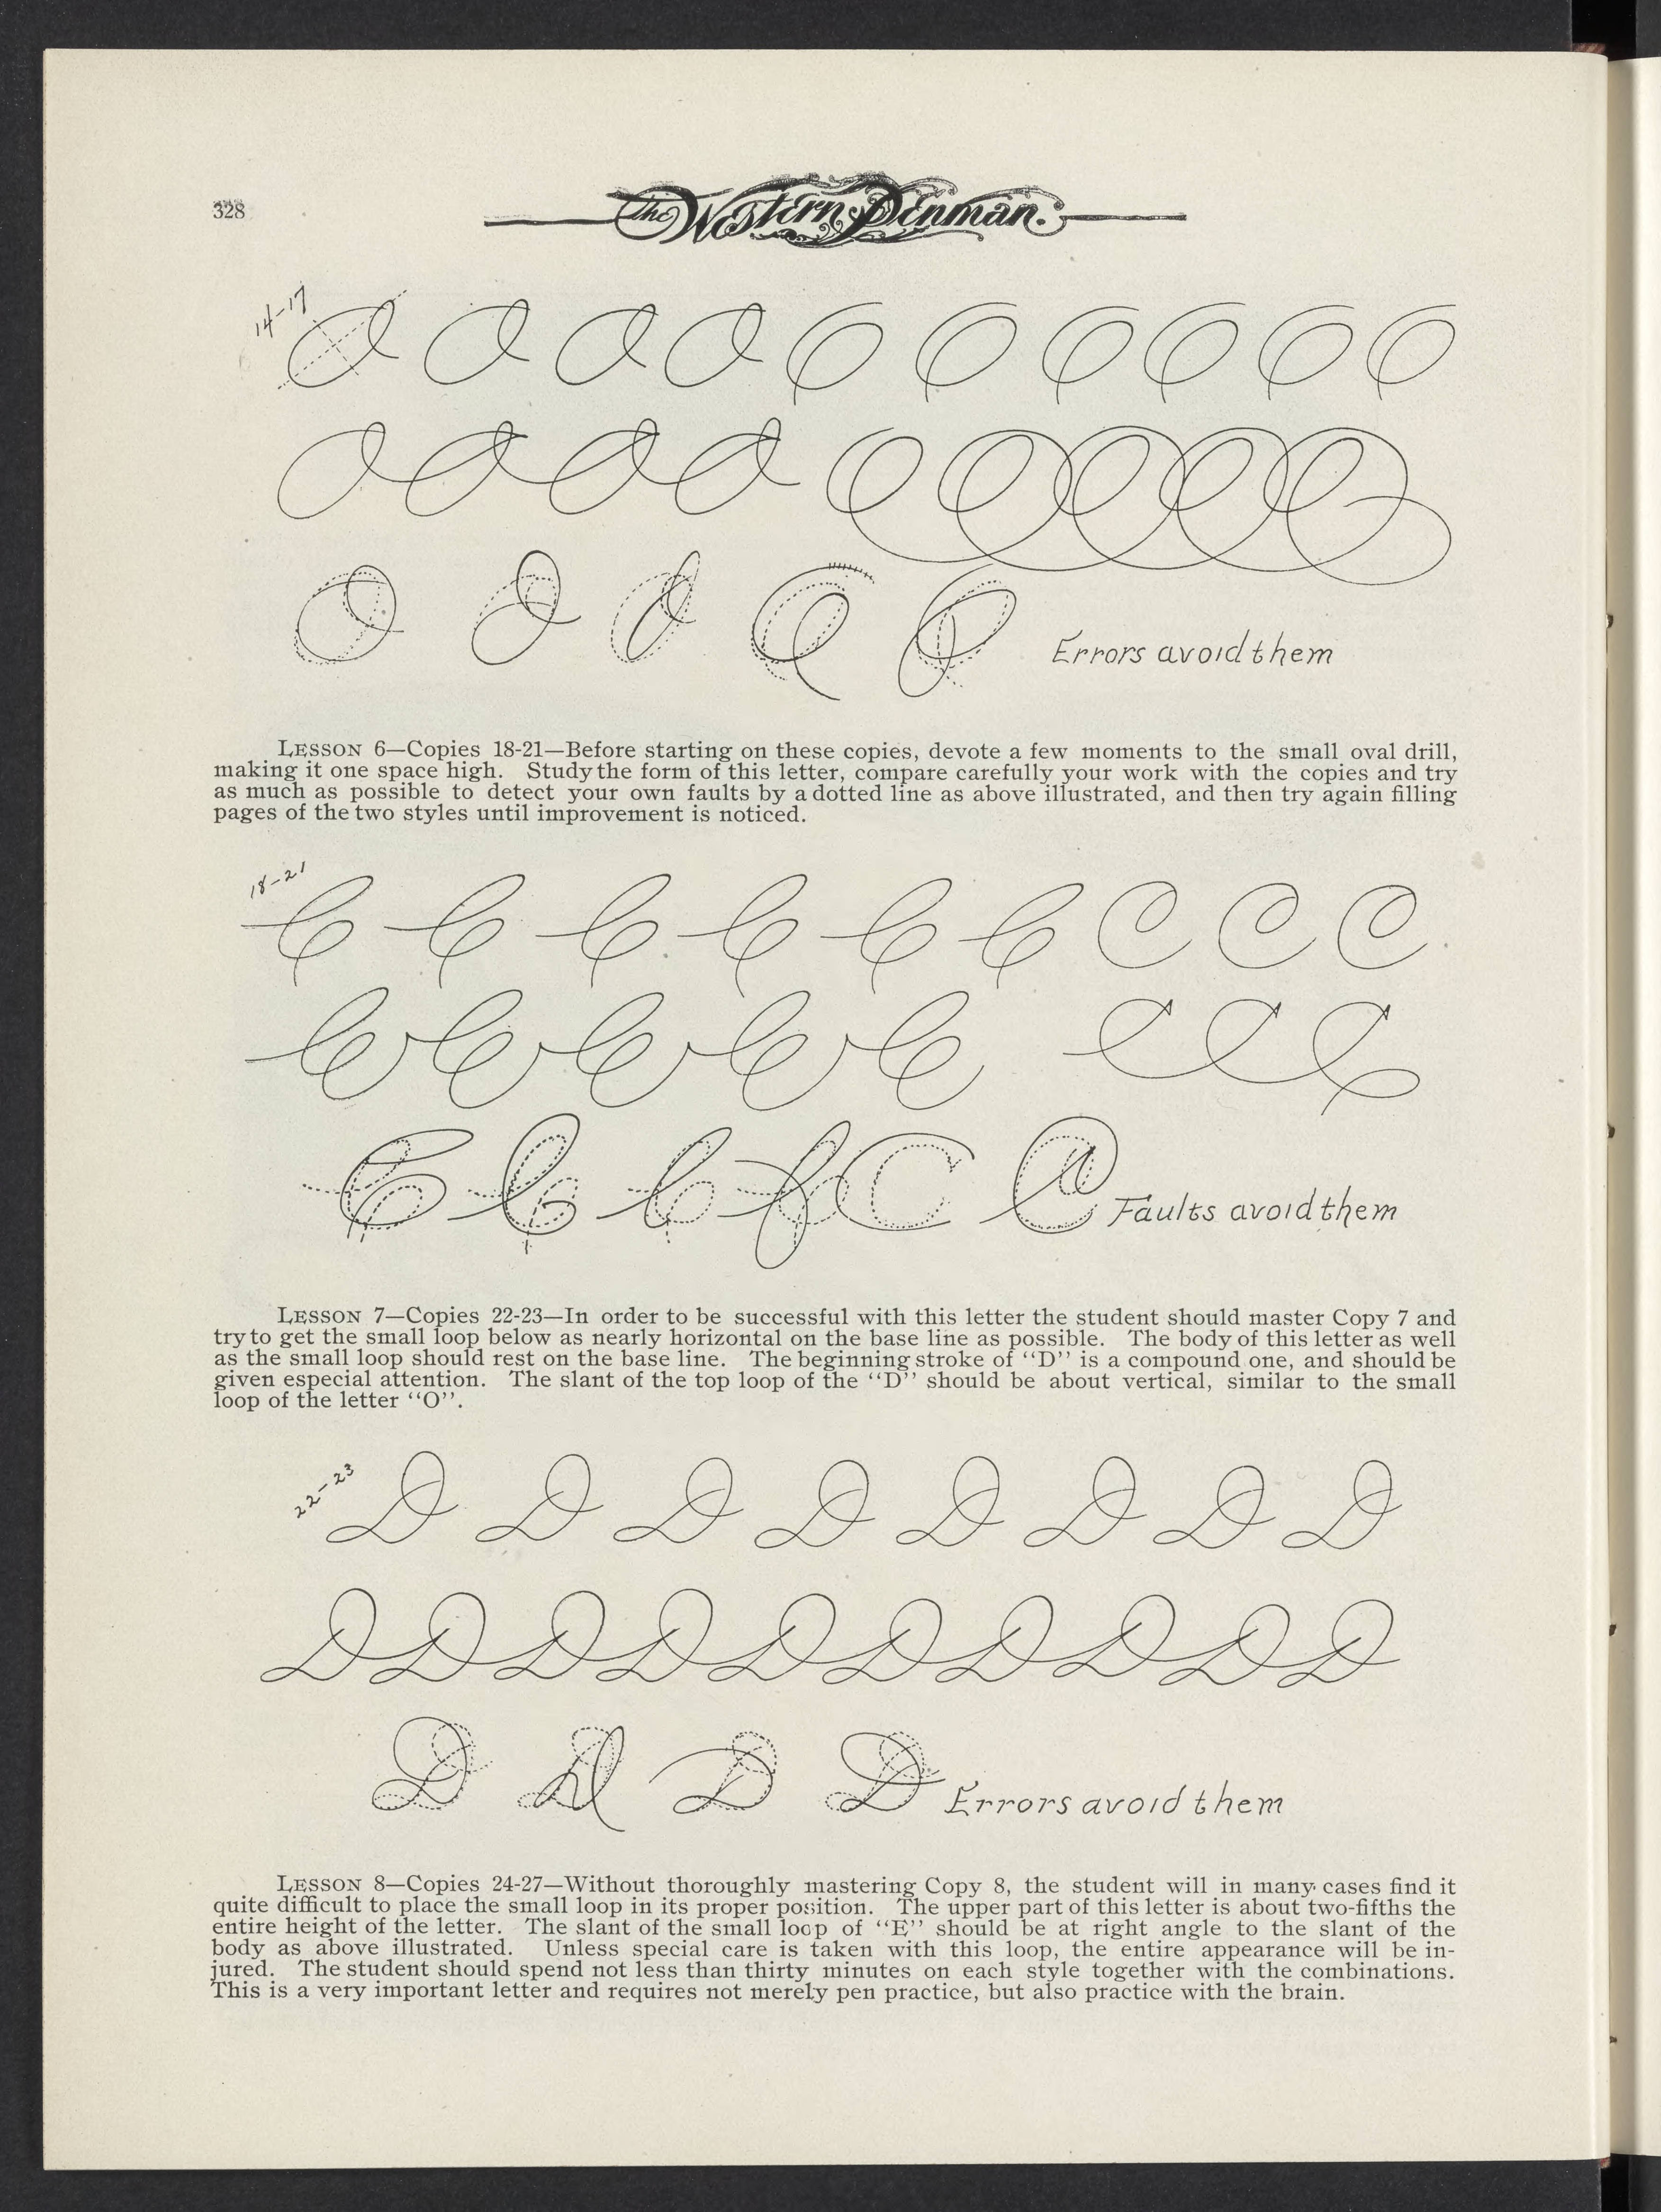 328
The Western Penman.
14-17
O O O O O O O O O O
O O O O O O O O O
O O O O O Errors avoid them
LESSON 6—Copies 18-21—Before starting on these copies, devote a few moments to the small oval drill,
making it one space high. Study the form of this letter, compare carefully your work with the copies and try
as much as possible to detect your own faults by a dotted line as above illustrated, and then try again filling
pages of the two styles until improvement is noticed.
18-21
C C C C C C C C C
C C C C C C C C
C C C C C C Faults avoid them
LESSON 7—Copies 22-23—In order to be successful with this letter the student should master Copy 7 and
try to get the small loop below as nearly horizontal on the base line as possible. The body of this letter as well
as the small loop should rest on the base line. The beginning stroke of "D" is a compound one, and should be
given especial attention. The slant of the top loop of the "D" should be about vertical, similar to the small
loop of the letter "O".
22-23
D D D D D D D D
D D D D D D D D D D
D D D D Errors avoid them
LESSON 8—Copies 24-27—Without thoroughly mastering Copy 8, the student will in many cases find it
quite difficult to place the small loop in its proper position. The upper part of this letter is about two-fifths the
entire height of the letter. The slant of the small loop of "E" should be at right angle to the slant of the
body as above illustrated. Unless special care is taken with this loop, the entire appearance will be in-
jured. The student should spend not less than thirty minutes on each style together with the combinations.
This is a very important letter and requires not merely pen practice, but also practice with the brain.